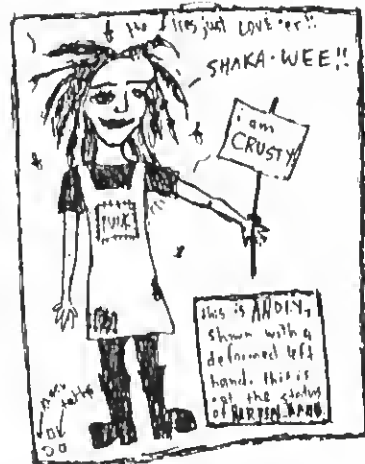 the flies just LOVE 'er!!
SHAKA-WEE!!
i am
CRUSTY
PUNK
this is ANDIY,
shown with a
deformed left
hand. this is
not the status
of